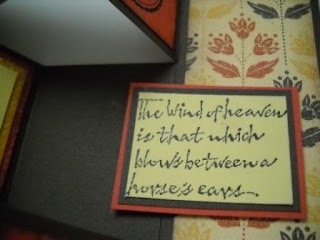 The wind of heaven
is that which
blows between a
horse's ears-.